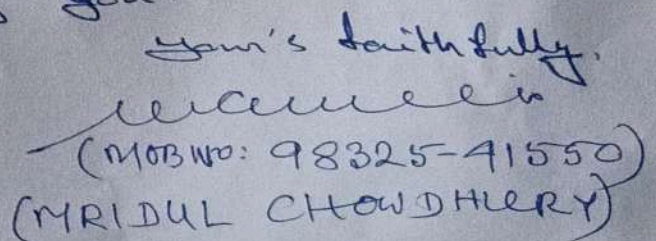 you
your's faithfully,
(MOB NO: 98325-41550)
(MRIDUL CHOWDHURY)